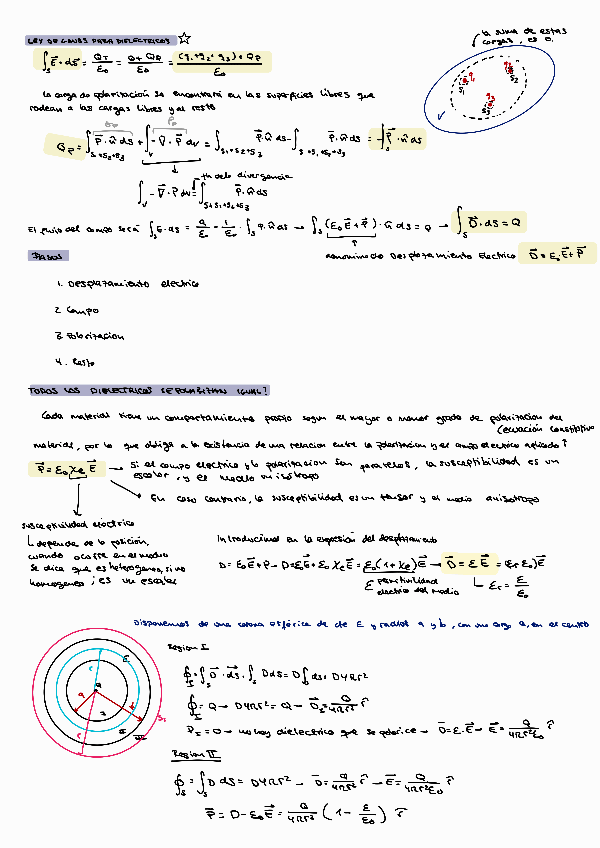 LEY DE GAUSS PARA DIELECTRICOS ☆
la suma de estas
cargas, es 0.
∫_S E⃗·ds⃗ = Q_T/ε₀ = (Q+Q_P)/ε₀ = ((q₁+q₂+q₃)+Q_P)/ε₀
q₁ S₁ q₂ S₂ q₃ S₃
la carga de polarización se encontrará en las superficies libres que
rodean a las cargas libres y al resto
Q_P = ∫_{S₁+S₂+S₃} P⃗·n̂ ds + ∫_V -∇⃗·P⃗ dv = ∫_{S₁+S₂+S₃} P⃗·n̂ ds - ∫_{S+S₁+S₂+S₃} P⃗·n̂ ds = -∫_S P⃗·n̂ ds
th de la divergencia
∫_V -∇⃗·P⃗ dv = ∫_{S+S₁+S₂+S₃} P⃗·n̂ ds
El flujo del campo será ∫_S E·ds = Q/ε₀ - 1/ε₀ · ∫_S P·n̂ ds → ∫_S (ε₀E⃗+P⃗)·n̂ ds = Q → ∫_S D⃗·ds = Q
denominado Desplazamiento Electrico D⃗ = ε₀·E⃗+P⃗
PASOS
1. Desplazamiento electrico
2. Campo
3. Polarizacion
4. Resto
TODOS LOS DIELECTRICOS SE POLARIZAN IGUAL?
Cada material tiene un comportamiento propio segun el mayor o menor grado de polarizacion del
(ecuación constitutiva
material, por lo que obliga a la existencia de una relacion entre la polarizacion y el campo electrico aplicado↑
P⃗ = ε₀ χe E⃗ → Si el campo electrico y la polaritacion son paralelos, la susceptibilidad es un
escalar, y el medio un isótropo
→ En caso contrario, la susceptibilidad es un tensor y el medio anisótropo
susceptibilidad eléctrica
↳ depende de la posición,
cuando ocurre en el medio
se dice que es heterogeneo, si no
homogeneo; es un escalar
Introducimos en la expresión del desplazamiento
D = ε₀E⃗+P → D = ε₀E⃗+ε₀ χe E⃗ = ε₀(1+χe)E⃗ → D⃗ = ε E⃗ = (εr ε₀)E⃗
ε permitividad
electrica del medio
↳ εr = ε/ε₀
Disponemos de una corona esférica de cte ε y radios a y b, con una carga Q, en el centro
Region I
Φ_I = ∫_S D⃗·ds⃗ = ∫_S D ds = D∫_S ds = D4πr²
Φ_I = Q → D4πr² = Q → D⃗_I = Q/4πr² r̂
P_I = 0 → no hay dielectrico que se polarice → D⃗ = ε·E⃗ → E⃗ = Q/4πr²ε₀ r̂
Region II
Φ_S = ∫_S D ds = D4πr² → D⃗ = Q/4πr² r̂ → E⃗ = Q/4πr²ε₀ r̂
P⃗ = D - ε₀E⃗ = Q/4πr² (1 - ε/ε₀) r̂